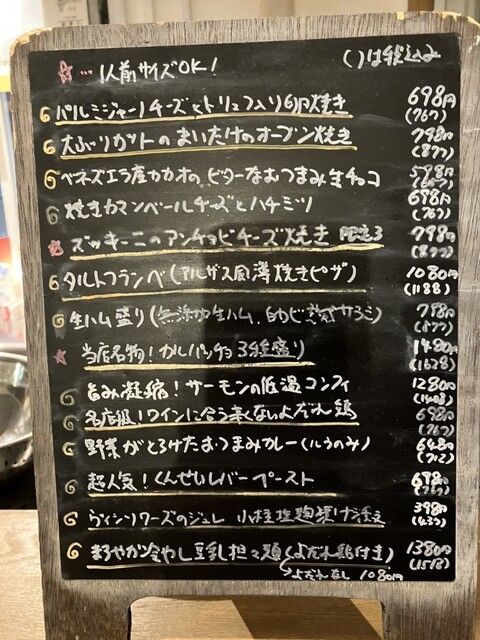 ☆…1人前サイズOK! ( )は税込み
パルミジャーノチーズとトリュフ入り 焼き 698円 (767)
大ぶりカットのまいたけのオーブン焼き 798円 (877)
ベネズエラ産カカオのビターなおつまみ生チョコ 598円
焼きカマンベールチーズとハチミツ 698円 (767)
☆ズッキーニのアンチョビチーズ焼き 限定3 798円 (877)
タルトフランベ(アルザス風薄焼きピザ) 1080円 (1188)
生ハム盛り(無添加生ハム、白かび サラミ) 798円 (877)
☆当店名物!カルパッチョ3種盛り 1480円 (1628)
旨み凝縮!サーモンの低温コンフィ 1280円 (1408)
名店級!ワインに合う辛くないよだれ鶏 698円 (767)
野菜がとろけたおつまみカレー(ルうのみ) 648円 (712)
超人気!くんせいレバーペースト 698円 (767)
ヴィシソワーズのジュレ 小柱塩麹漬け添え 398円 (437)
まろやか冷やし豆乳担々麺(よだれ鶏付き) 1380円 (1518)
よだれ無し 1080円